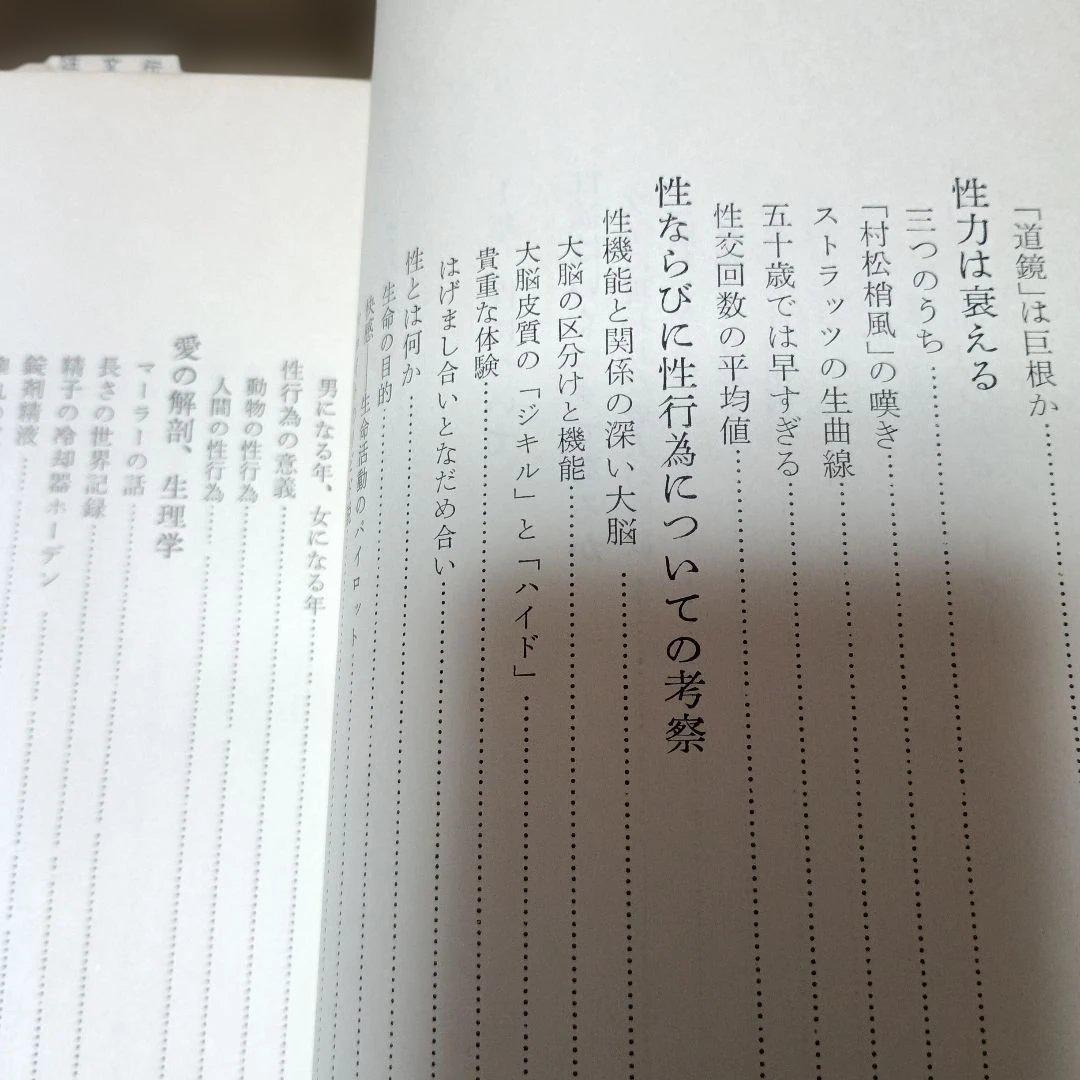 「道鏡」は巨根か
性力は衰える
三つのうち
「村松梢風」の嘆き
ストラッツの生曲線
五十歳では早すぎる
性交回数の平均値
性ならびに性行為についての考察
性機能と関係の深い大脳
大脳の区分けと機能
大脳皮質の「ジキル」と「ハイド」
貴重な体験
はげまし合いとなだめ合い
性とは何か
生命の目的
快感――生命活動のパイロット
男になる年、女になる年
性行為の意義
動物の性行為
人間の性行為
愛の解剖、生理学
マーラーの話
長さの世界記録
精子の冷却器ホーデン
錠剤精液